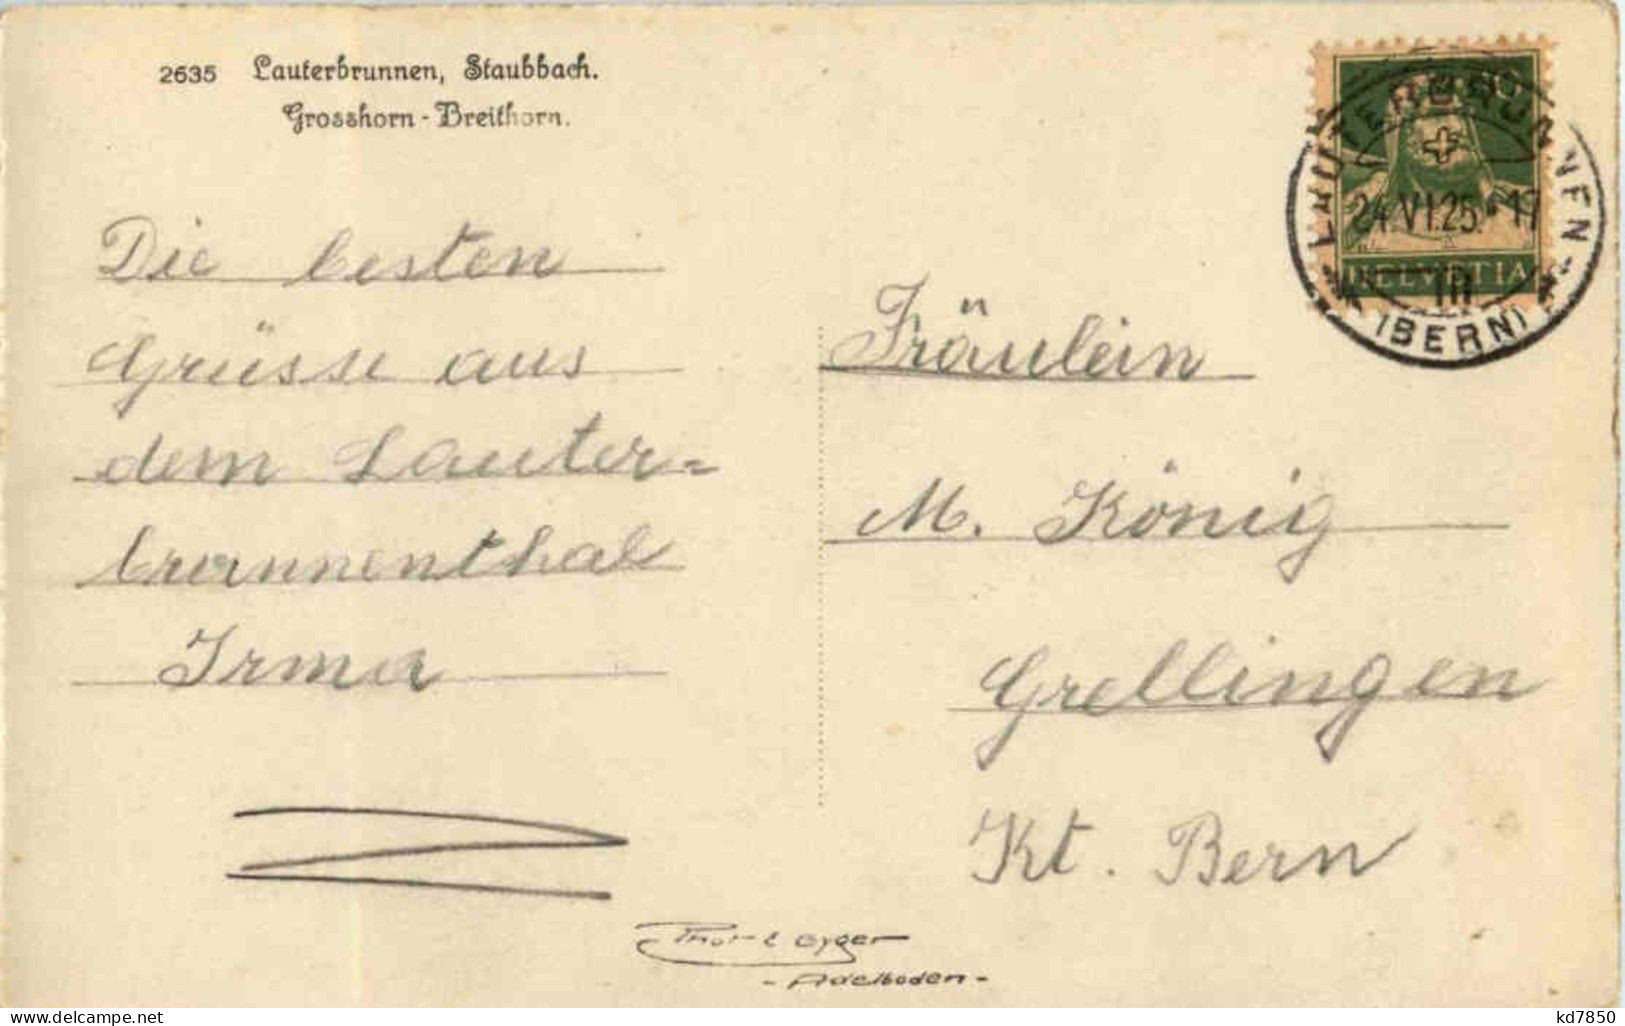 2635 Lauterbrunnen, Staubbach.
Grosshorn - Breithorn.
LAUTERBRUNNEN
24.VI.25.-17
HELVETIA
III
(BERN)
Die besten
Grüsse aus
dem Lauter=
brunnenthal
Irma
Fräulein
M. König
Grellingen
Kt. Bern
Phot. Gyger
- Adelboden -
delcampe.net
kd7850